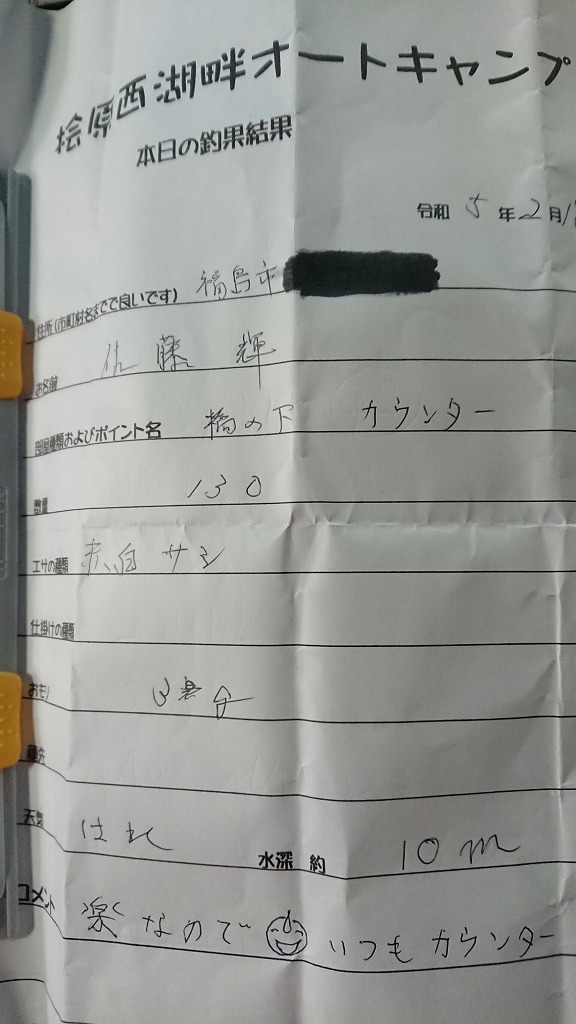 桧原西湖畔オートキャンプ
本日の釣果結果
令和 5 年 2 月
住所(市町村名までで良いです) 福島市
お名前 佐藤 輝
部屋種類およびポイント名 橋の下 カウンター
数量 130
エサの種類 赤,白 サシ
仕掛けの種類
おもり
穂先
天気 はれ 水深 約 10m
コメント 楽なので いつもカウンター